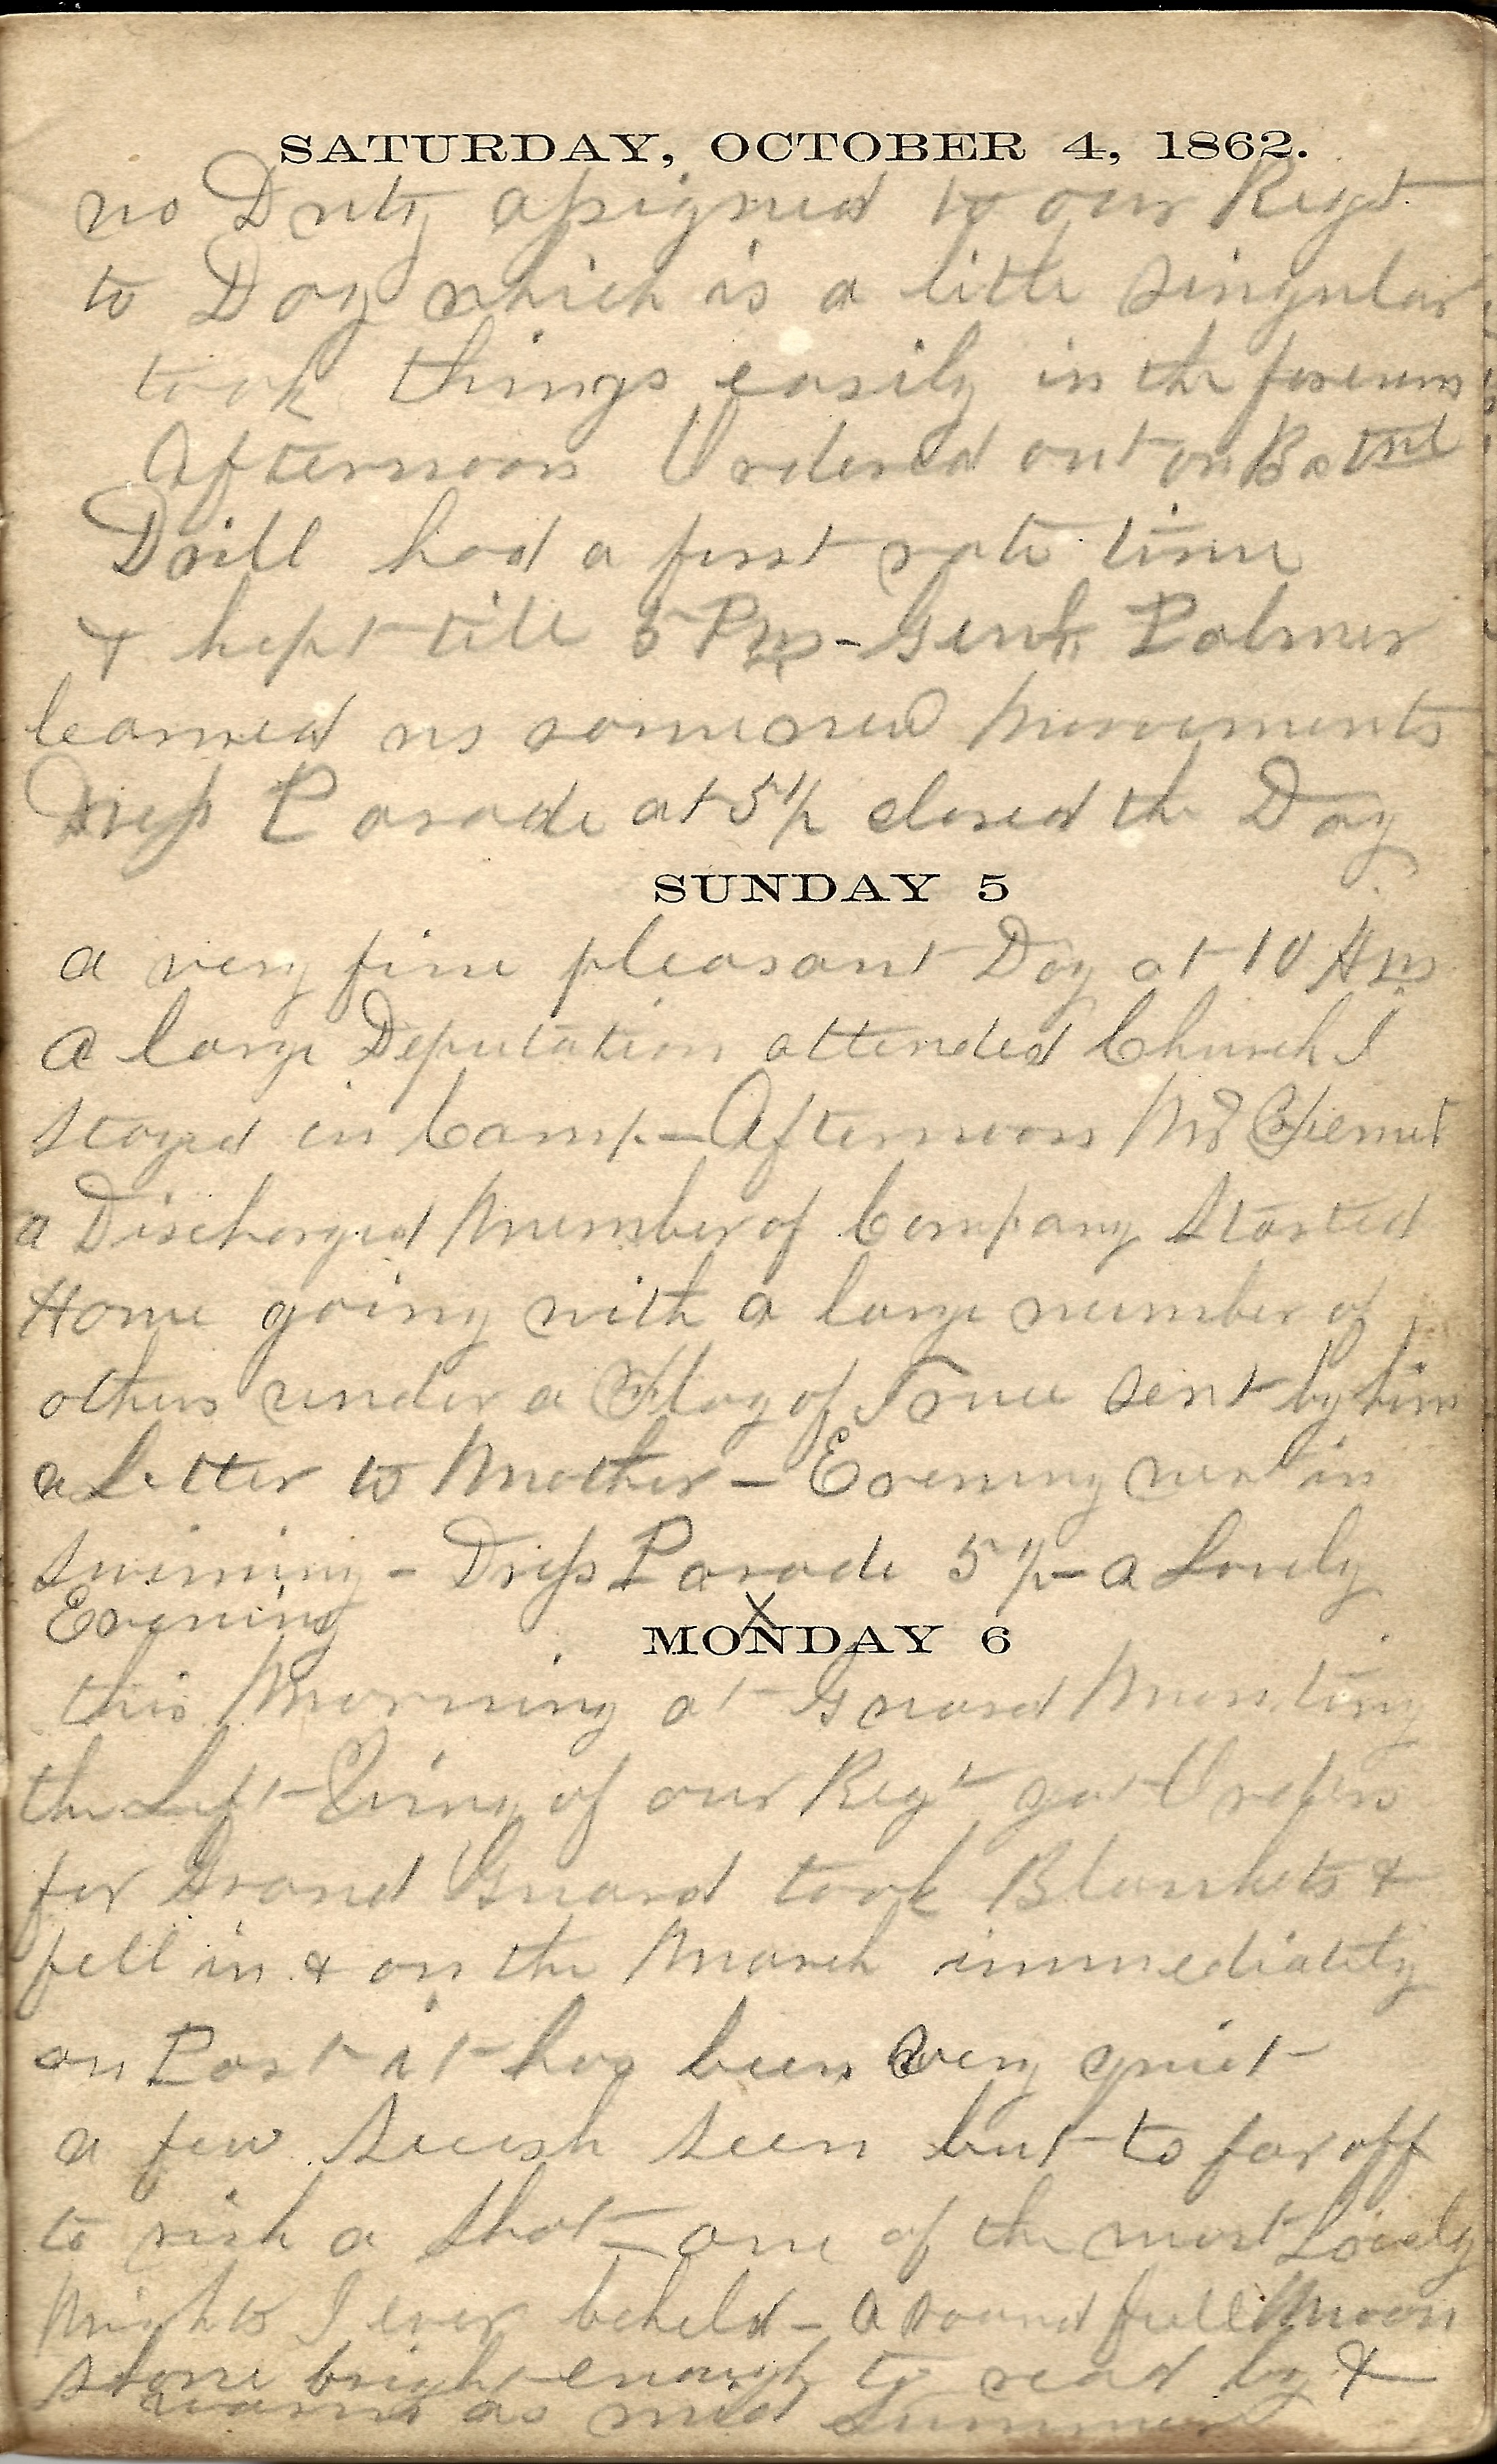 SATURDAY, OCTOBER 4, 1862.
no Duty assigned to our Regt.
to Day which is a little singular
took things easily in the forenoon
Afternoon Ordered out on Batnl
Drill had a first rate time
& kept till 5 Pm - Genl. Palmer
learned us some new Movements
Dress Parade at 5 1/2 closed the Day
SUNDAY 5
a very fine pleasant Day at 10 Am
a large Deputation attended Church I
stayed in Camp - Afternoon Mr
a Discharged Member of Company Started
Home going with a large number of
others under a Flag of Truce sent by him
a Letter to Mother - Evening went in
swiming - Dress Parade 5 1/2 - a Lovely
Evening
X
MONDAY 6
this Morning at Guard Mounting
the Left Wing of our Regt got Orders
for Grand Guard took Blankets &
fell in & on the March immediatly
on Post it has been very quiet
a few Secesh seen but to far off
to risk a shot - one of the most Lovely
Nights I ever beheld - a round full Moon
shone bright enough to read by &
warm as mid Summer